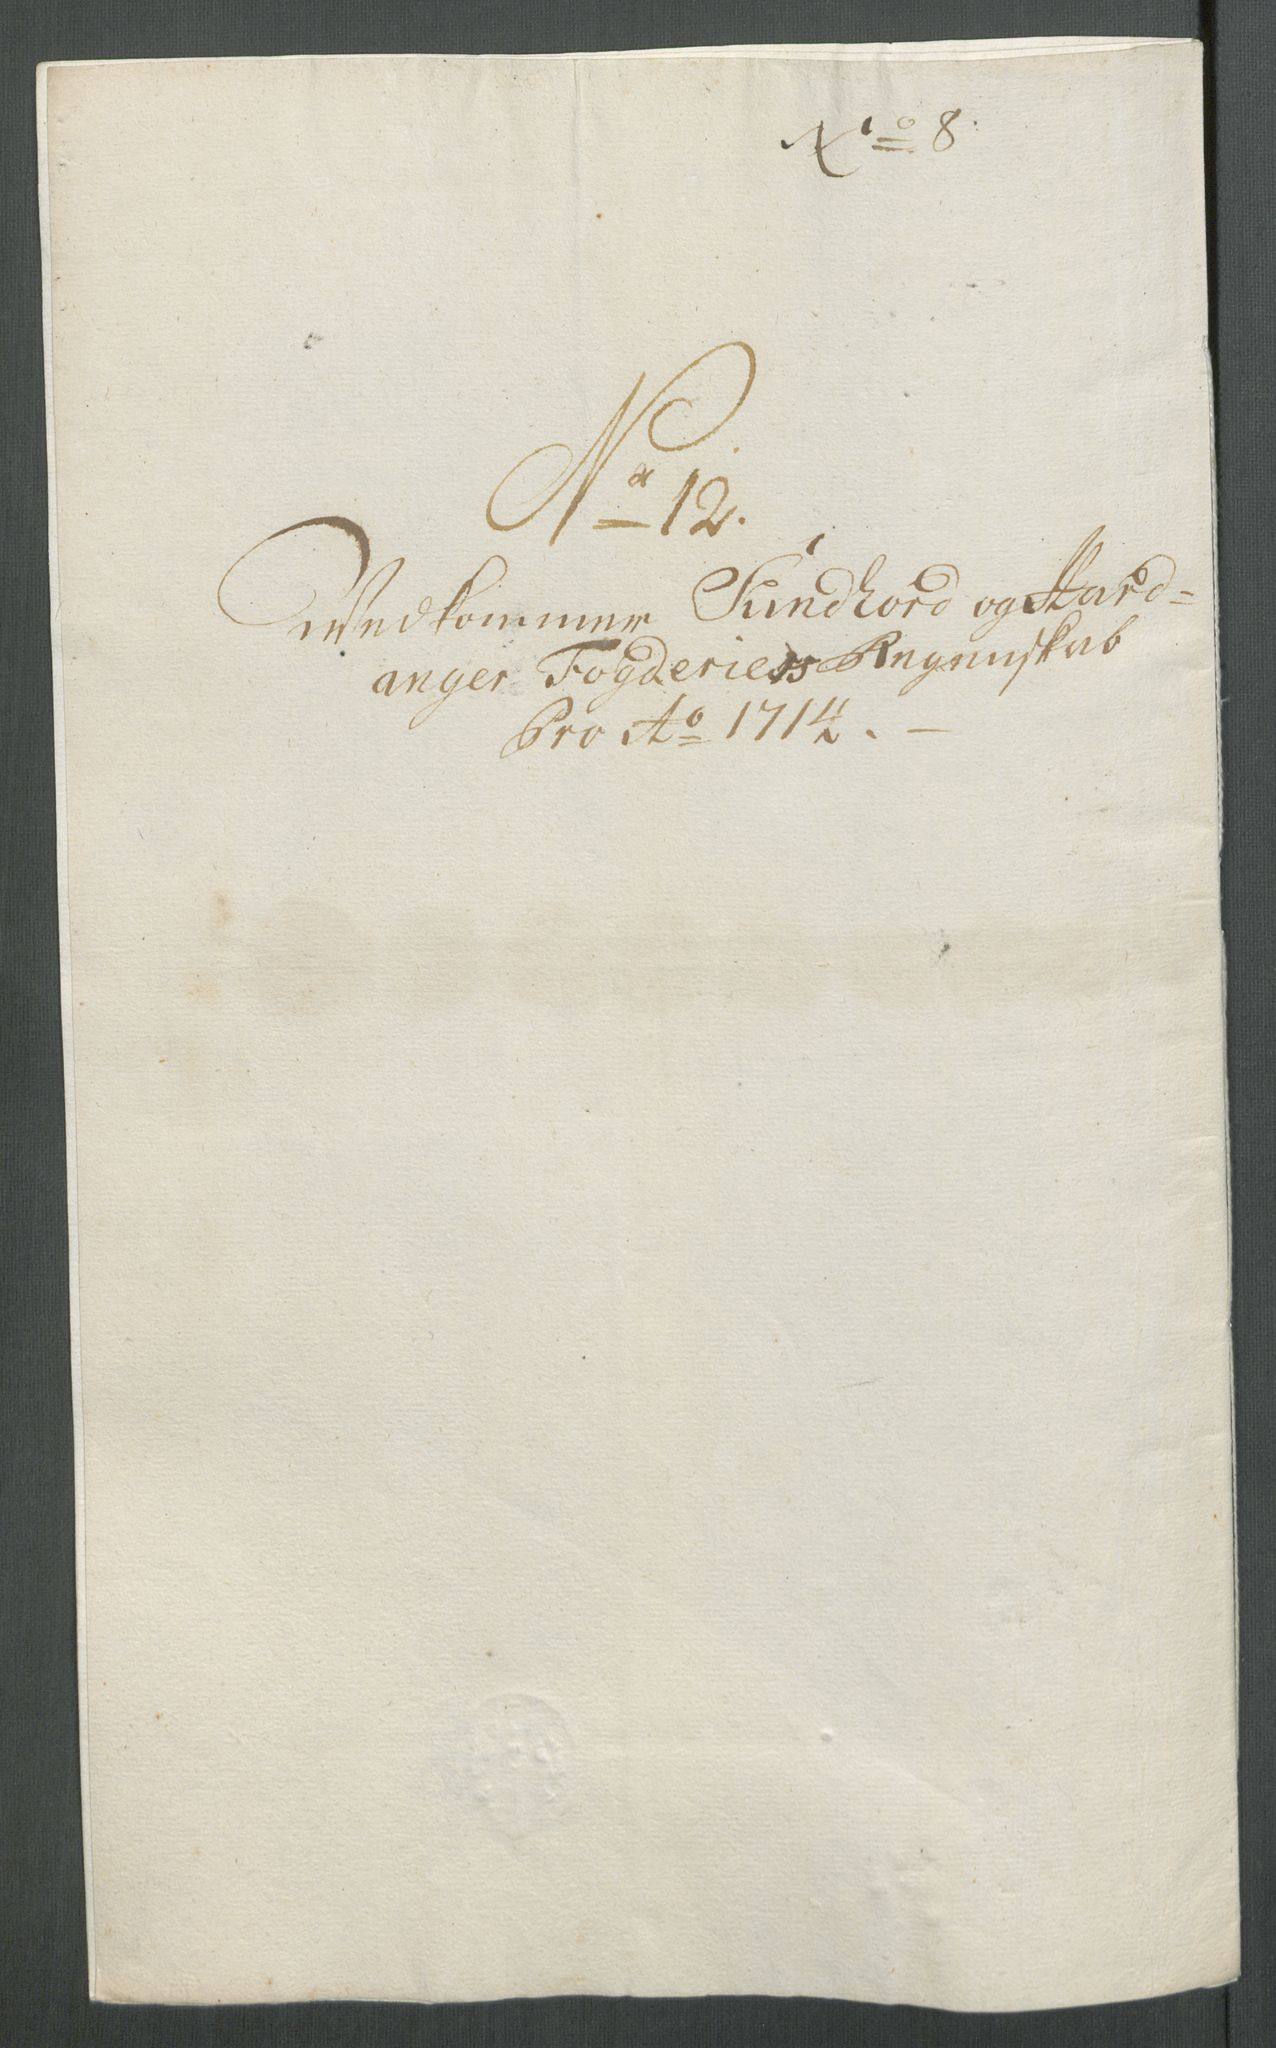 No 8.
No 12.
Vedkommer Sundhord og Hard=
anger Fogderiers Regenskab
Pro Ao 1714. —